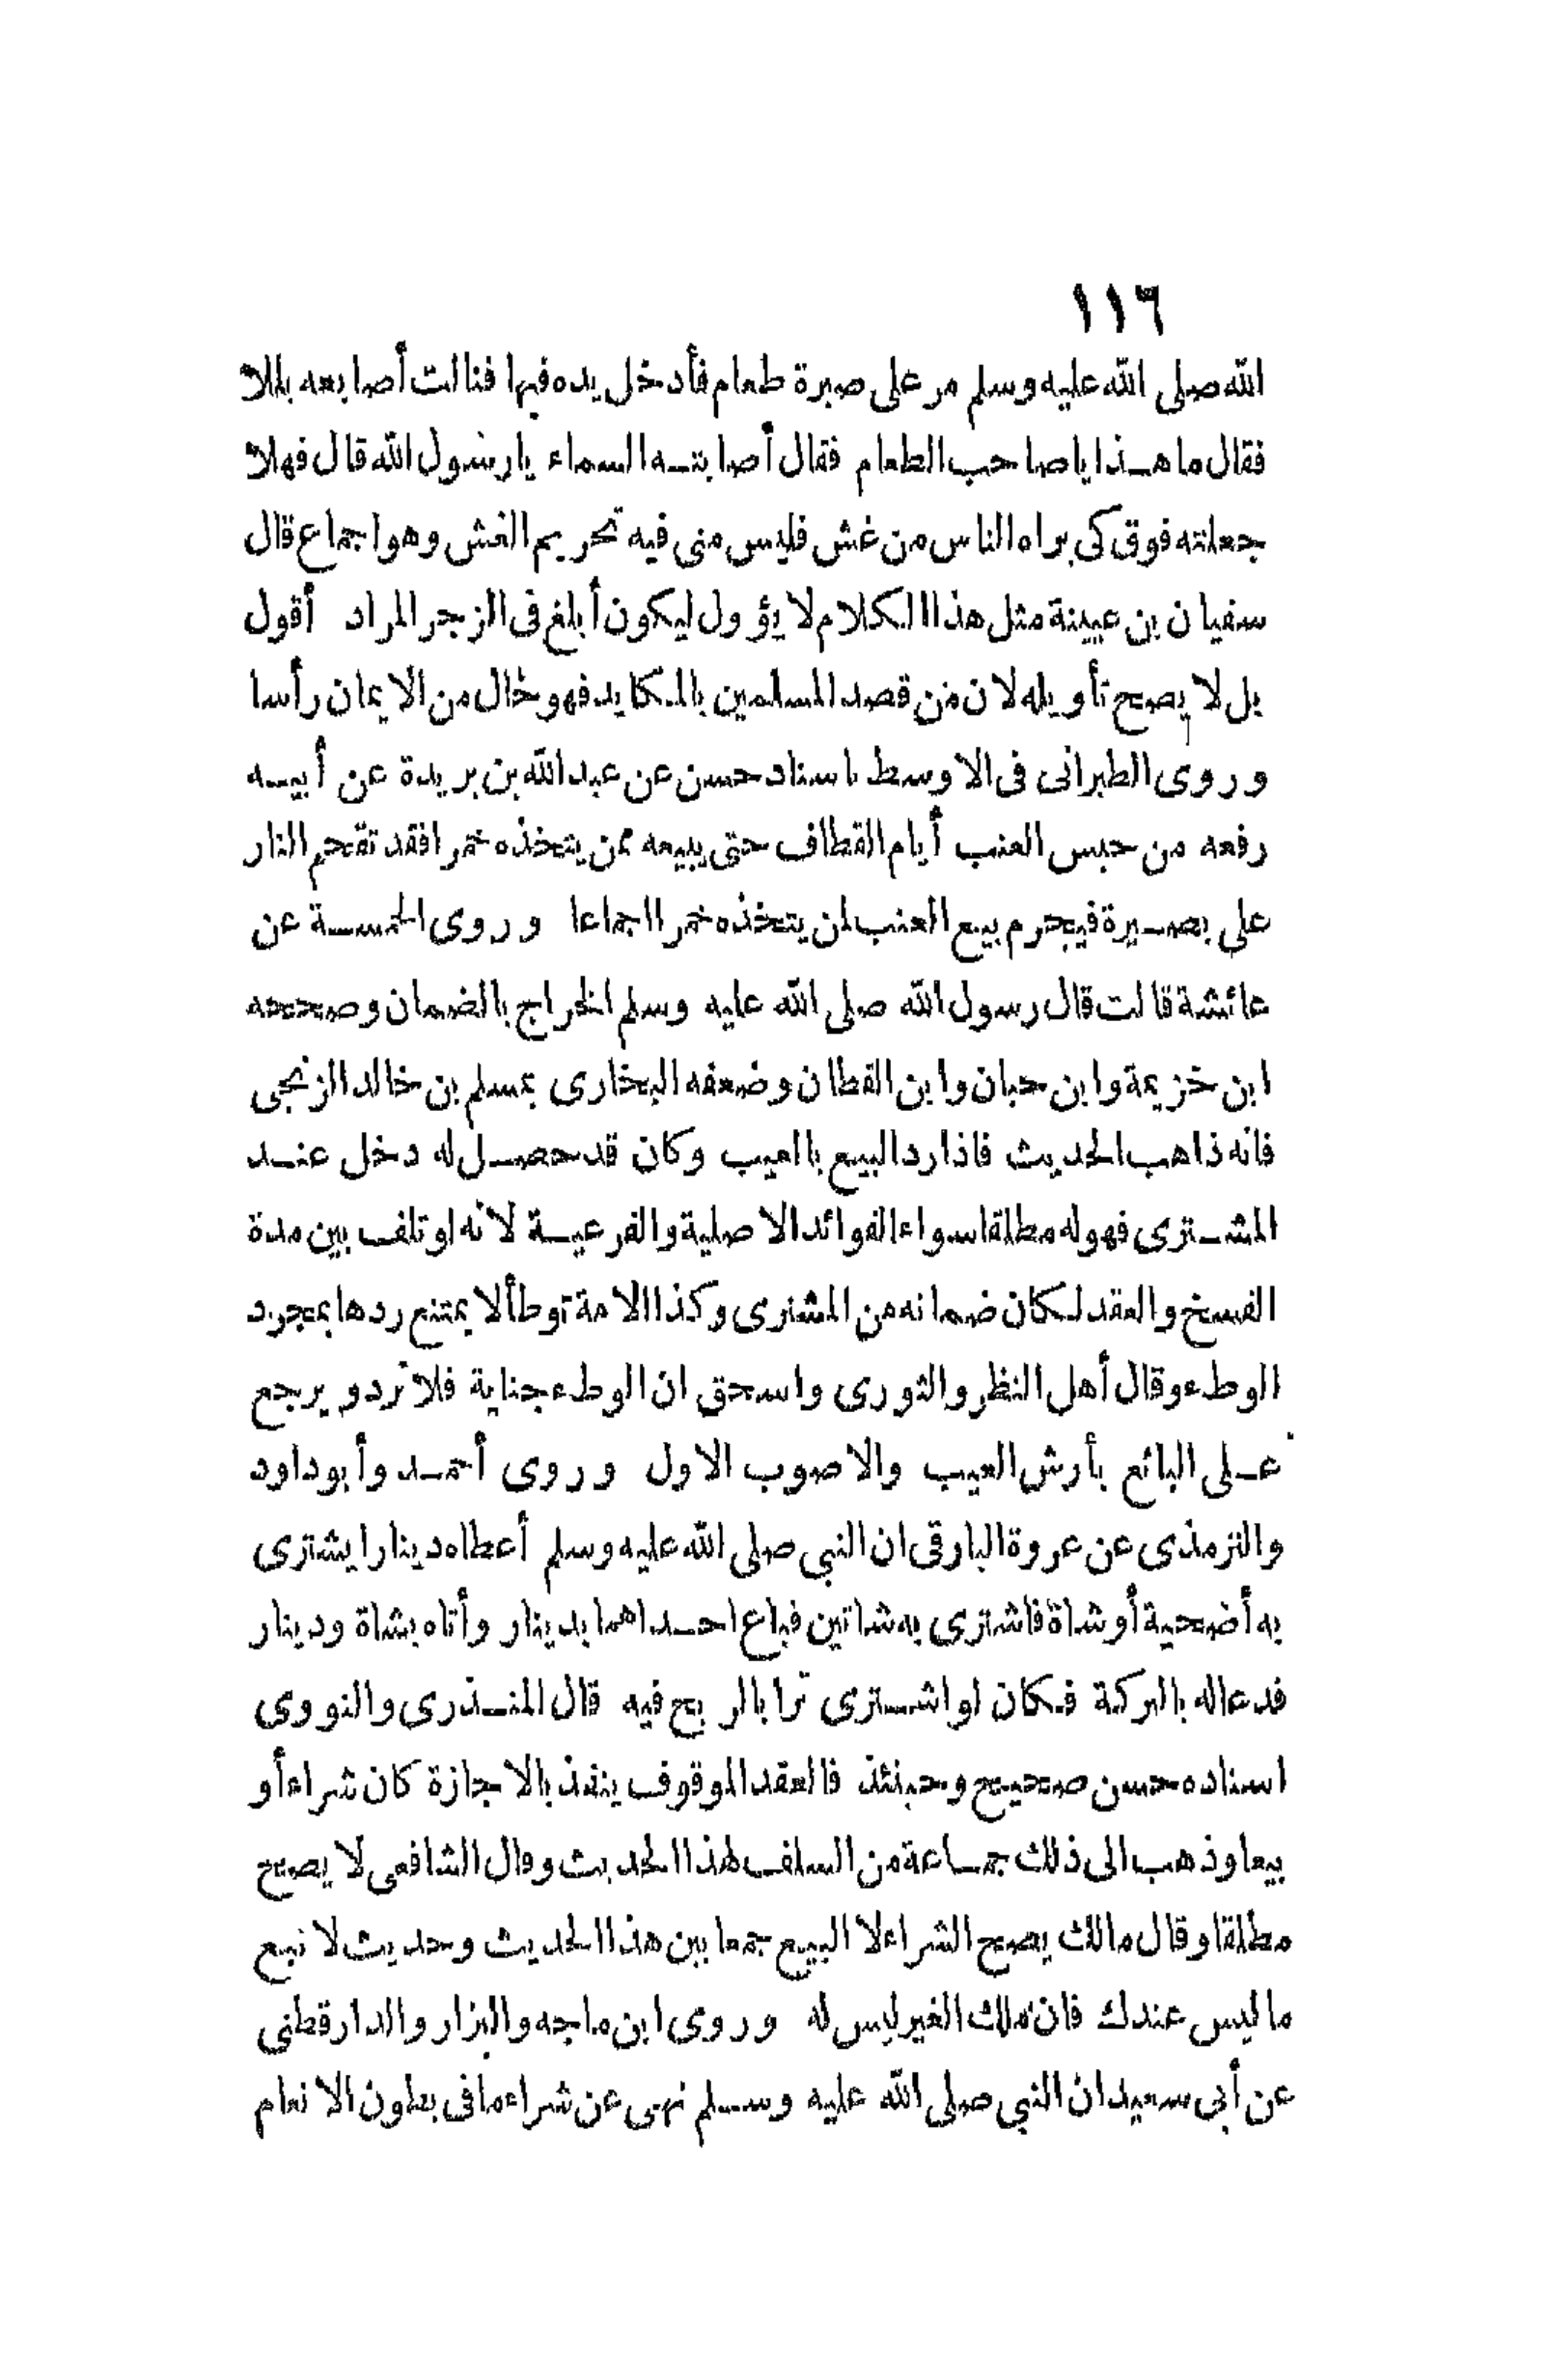 ١١٦
الله صلى الله عليه وسلم مر على صبرة طعام فأدخل يده فيها فنالت أصابعه بللا
فقال ما هذا ياصاحب الطعام فقال أصابته السماء يارسول الله قال فهلا
جعلته فوق كى يراه الناس من غش فليس منى فيه تحريم الغش وهو اجماع قال
سفيان بن عيينة مثل هذا الكلام لا يؤول ليكون أبلغ فى الزجر المراد أقول
بل لا يصح تأويله لان من قصد المسلمين بالمكايد فهو خال من الايمان رأسا
وروى الطبرانى فى الاوسط باسناد حسن عن عبد الله بن بريدة عن أبيه
رفعه من حبس العنب أيام القطاف حتى يبيعه ممن يتخذه خمرا فقد تقحم النار
على بصيرة فيحرم بيع العنب لمن يتخذه خمرا اجماعا وروى الخمسة عن
عائشة قالت قال رسول الله صلى الله عليه وسلم الخراج بالضمان وصححه
ابن خزيمة وابن حبان وابن القطان وضعفه البخارى بمسلم بن خالد الزنجى
فانه ذاهب الحديث فاذا رد البيع بالعيب وكان قد حصل له دخل عند
المشترى فهو له مطلقا سواء الفوائد الاصلية والفرعية لانه لو تلف بين مدة
الفسخ والعقد لكان ضمانه من المشترى وكذا الامة توطأ لا يمتنع ردها بمجرد
الوطء وقال أهل النظر والثورى واسحق ان الوطء جناية فلا ترد ويرجع
على البائع بأرش العيب والاصوب الاول وروى أحمد وأبو داود
والترمذى عن عروة البارقى ان النبي صلى الله عليه وسلم أعطاه دينارا يشترى
به أضحية أو شاة فاشترى به شاتين فباع احداهما بدينار وأتاه بشاة ودينار
فدعا له بالبركة فكان لو اشترى ترابا لربح فيه قال المنذرى والنووى
اسناده حسن صحيح وحينئذ فالعقد الموقوف ينفذ بالاجازة كان شراء أو
بيعا وذهب الى ذلك جماعة من السلف لهذا الحديث وقال الشافعى لا يصح
مطلقا وقال مالك يصح الشراء لا البيع جمعا بين هذا الحديث وحديث لا تبع
ما ليس عندك فان ملك الغير ليس له وروى ابن ماجه والبزار والدارقطنى
عن أبى سعيد ان النبي صلى الله عليه وسلم نهى عن شراء ما فى بطون الانعام